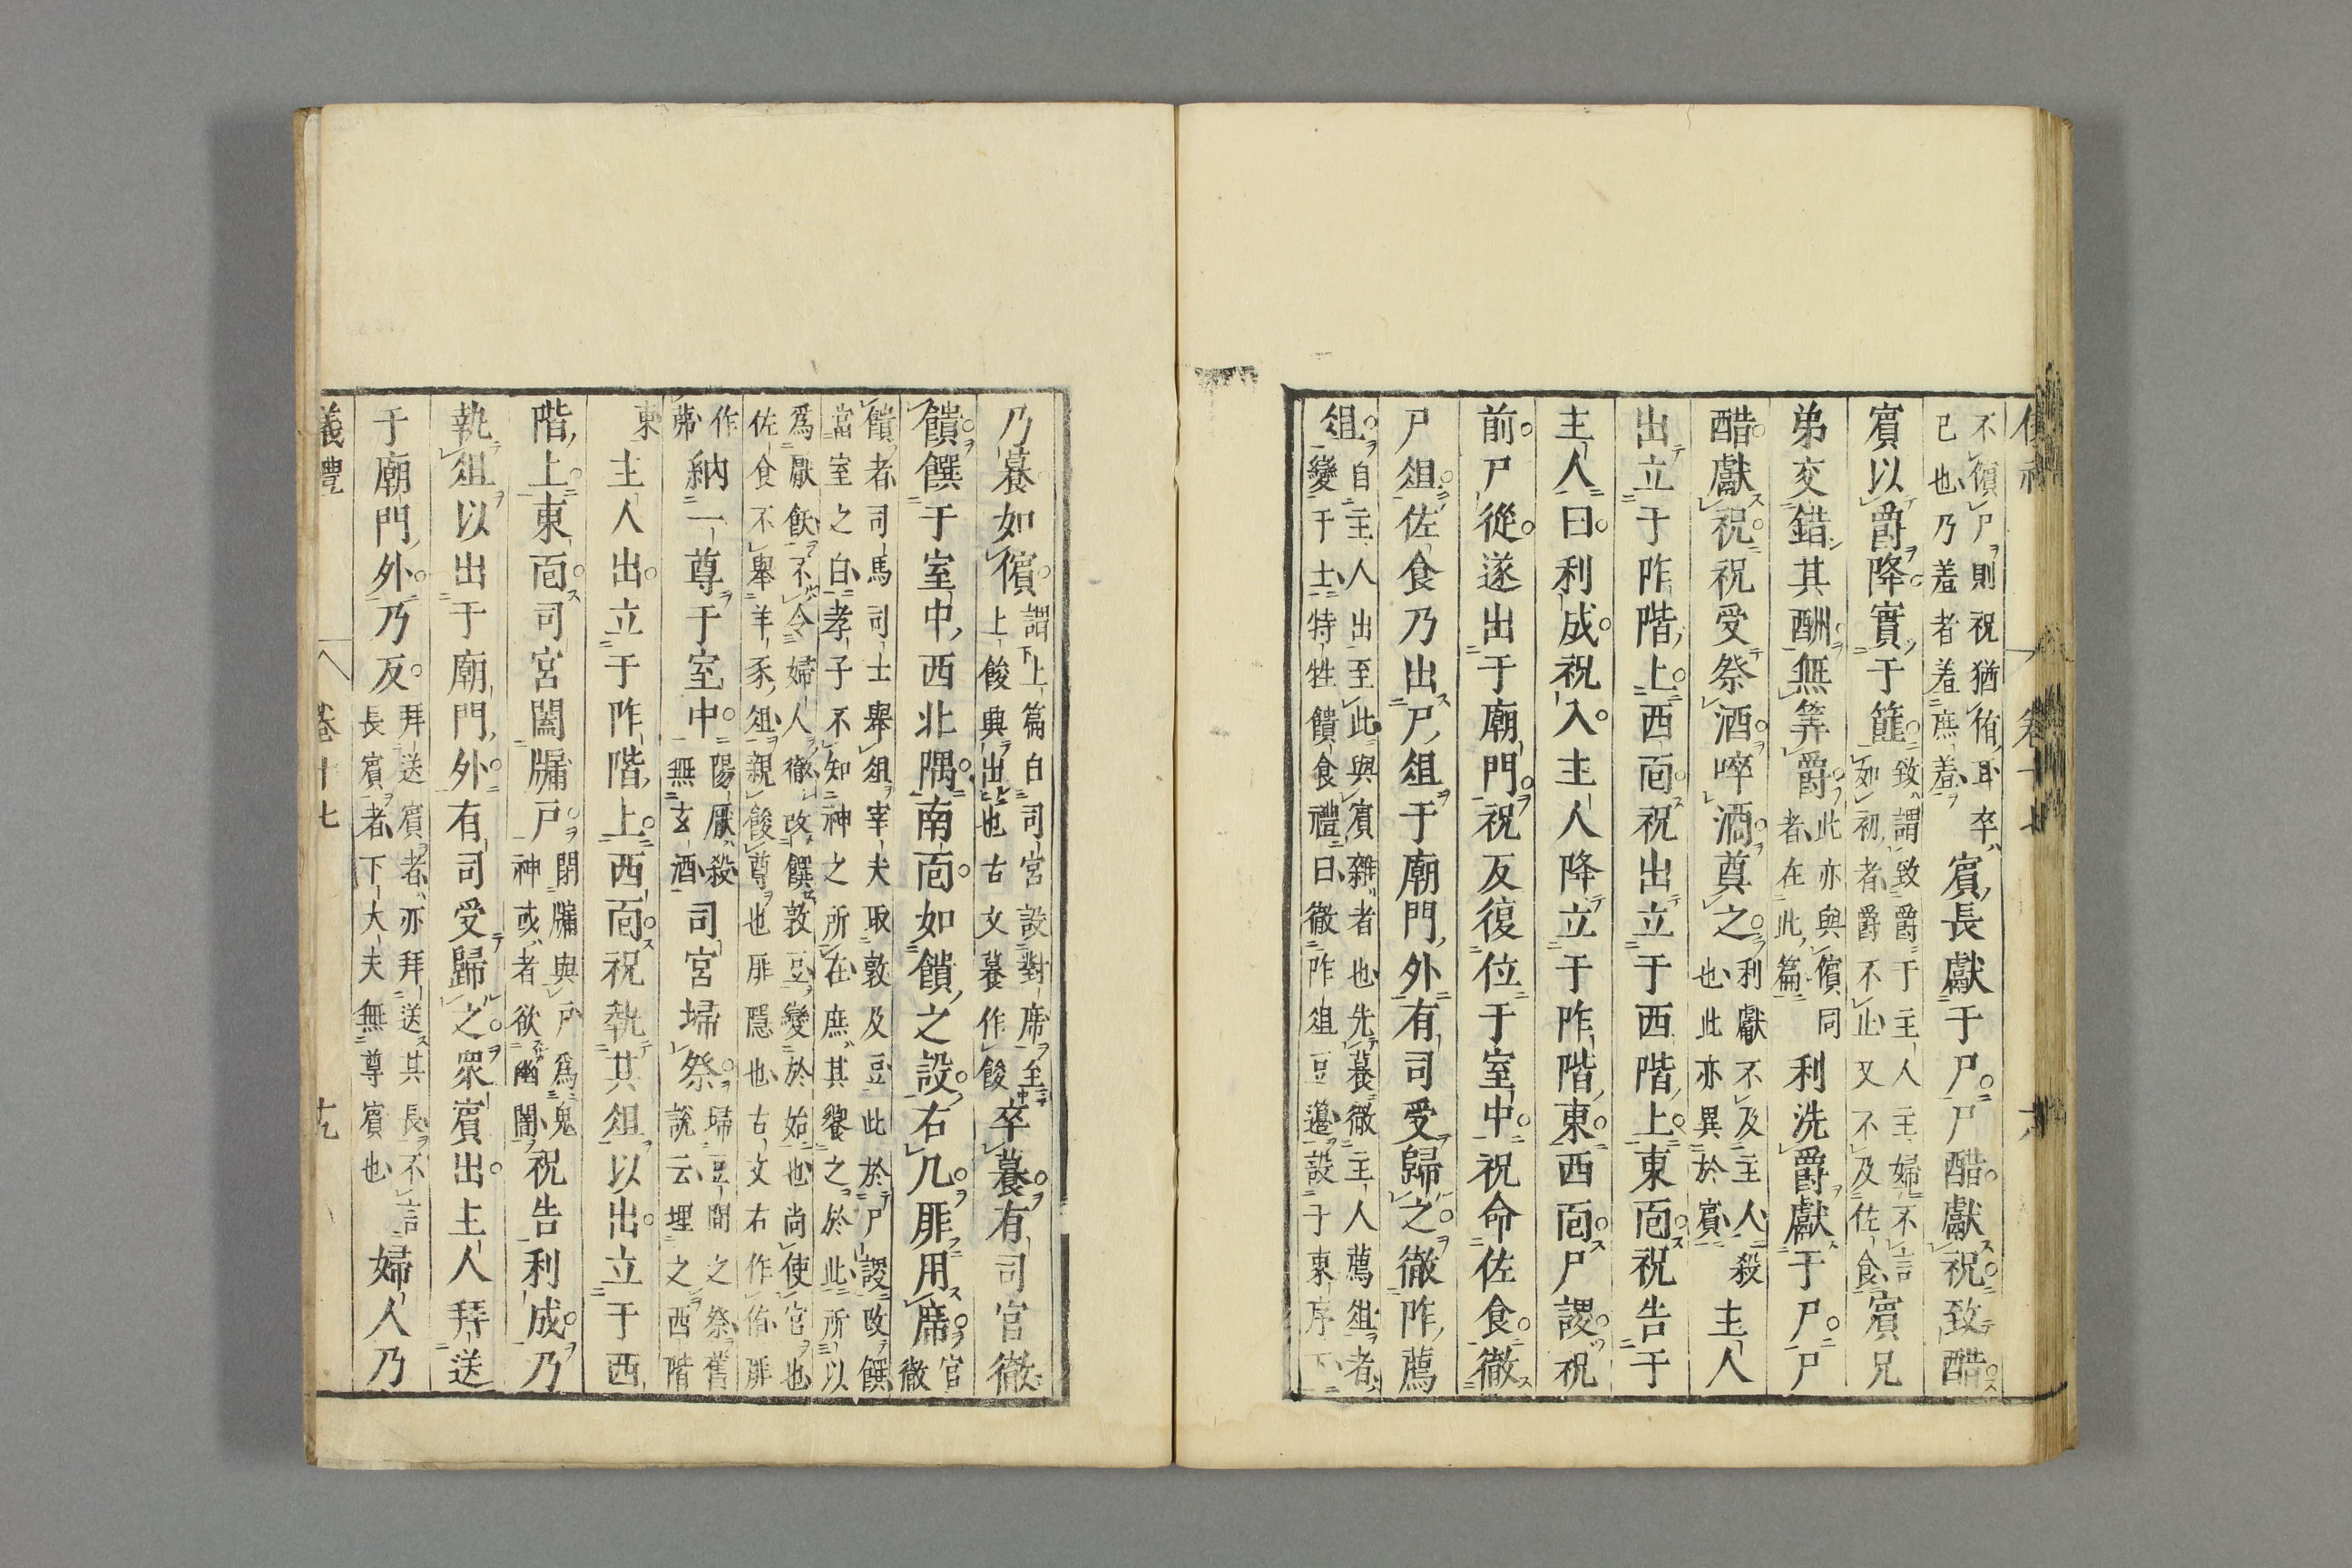 不儐尸則祝猶侑耳卒
已也乃羞者羞庶羞
賓長獻于尸尸酢獻祝致醋
賓以爵降實于篚
致謂致爵于主人主婦不言
如初者爵不止又不及佐食
賓兄
弟交錯其酬無筭爵
此亦與儐同
者在此篇
利洗爵獻于尸尸
醋獻祝祝受祭酒啐酒奠之
利獻不及主人殺
也此亦異於賓
主人
出立于阼階上西面祝出立于西階上東面祝告于
主人曰利成祝入主人降立于阼階東西面尸謖祝
前尸從遂出于廟門祝反復位于室中祝命佐食徹
尸俎佐食乃出尸俎于廟門外有司受歸之徹阼薦
俎
自主人出至此與賓雜者也先養徹主人薦俎者
變于士特牲饋食禮曰徹阼俎豆籩設于東序下
乃養如儐
謂上篇自司宮設對席至
上餕興出也古文養作餕
卒養有司官徹
饋饌于室中西北隅南面如饋之設右几厞用席
官
徹
饋者司馬司士舉俎宰夫取敦及豆此於尸謖改饌
當室之白孝子不知神之所在庶其饗之於此所以
爲厭飫不令婦人徹改饌敦豆變於始也尚使官也
佐食不舉羊豕俎親餕尊也厞隱也古文右作侑厞
作
茀
納一尊于室中
陽厭殺
無玄酒
司宮埽祭
埽豆間之祭舊
說云埋之西階
東
主人出立于阼階上西面祝執其俎以出立于西
階上東面司宮闔牖戶
閉牖與戶爲鬼
神或者欲幽闇
祝告利成乃
執俎以出于廟門外有司受歸之衆賓出主人拜送
于廟門外乃反
拜送賓者亦拜送其長不言
長賓者下大夫無尊賓也
婦人乃
儀禮 卷十七